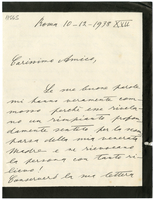 Roma 10-12-1938 XVII
Carissimo Amico,
Le sue buone parole
mi hanno veramente com=
mosso perché esse rivela=
no un rimpianto profon=
damente sentito per la scom=
parsa della mia venerata
Madre e ne rievocano
la persona con tanto ri=
lievo!
Conserverò la sua lettera